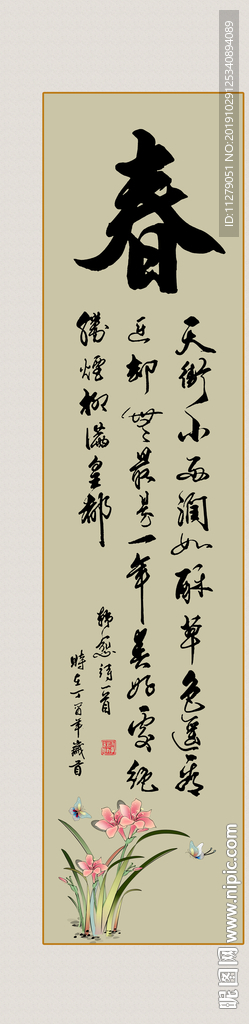 春
天街小雨潤如酥草色遥看
近却無最是一年春好處絕
勝煙柳滿皇都
韓愈詩一首
時在丁酉年歲首
ID:11279051 NO:20191029125340894089
昵图网 www.nipic.com